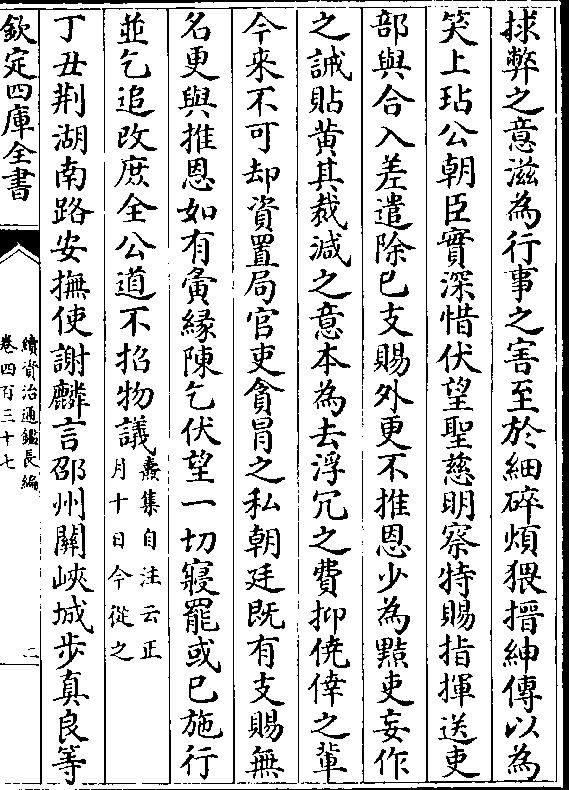 捄弊之意滋為行事之害至於細碎煩猥搢紳傳以為
笑上玷公朝臣實深惜伏望聖慈明察特賜指揮送吏
部與合入差遣除已支賜外更不推恩少為黠吏妄作
之誡貼黄其裁減之意本為去浮冗之費抑僥倖之軰
今来不可却資置局官吏貪冐之私朝廷既有支賜無
名更與推恩如有夤縁陳乞伏望一切寢罷或已施行
並乞追改庶全公道不招物議
燾集自注云正
月十日今從之
丁丑荆湖南路安撫使謝麟言邵州關峽城步真良等
欽定四庫全書
續資治通鑑長編
卷四百三十七
二